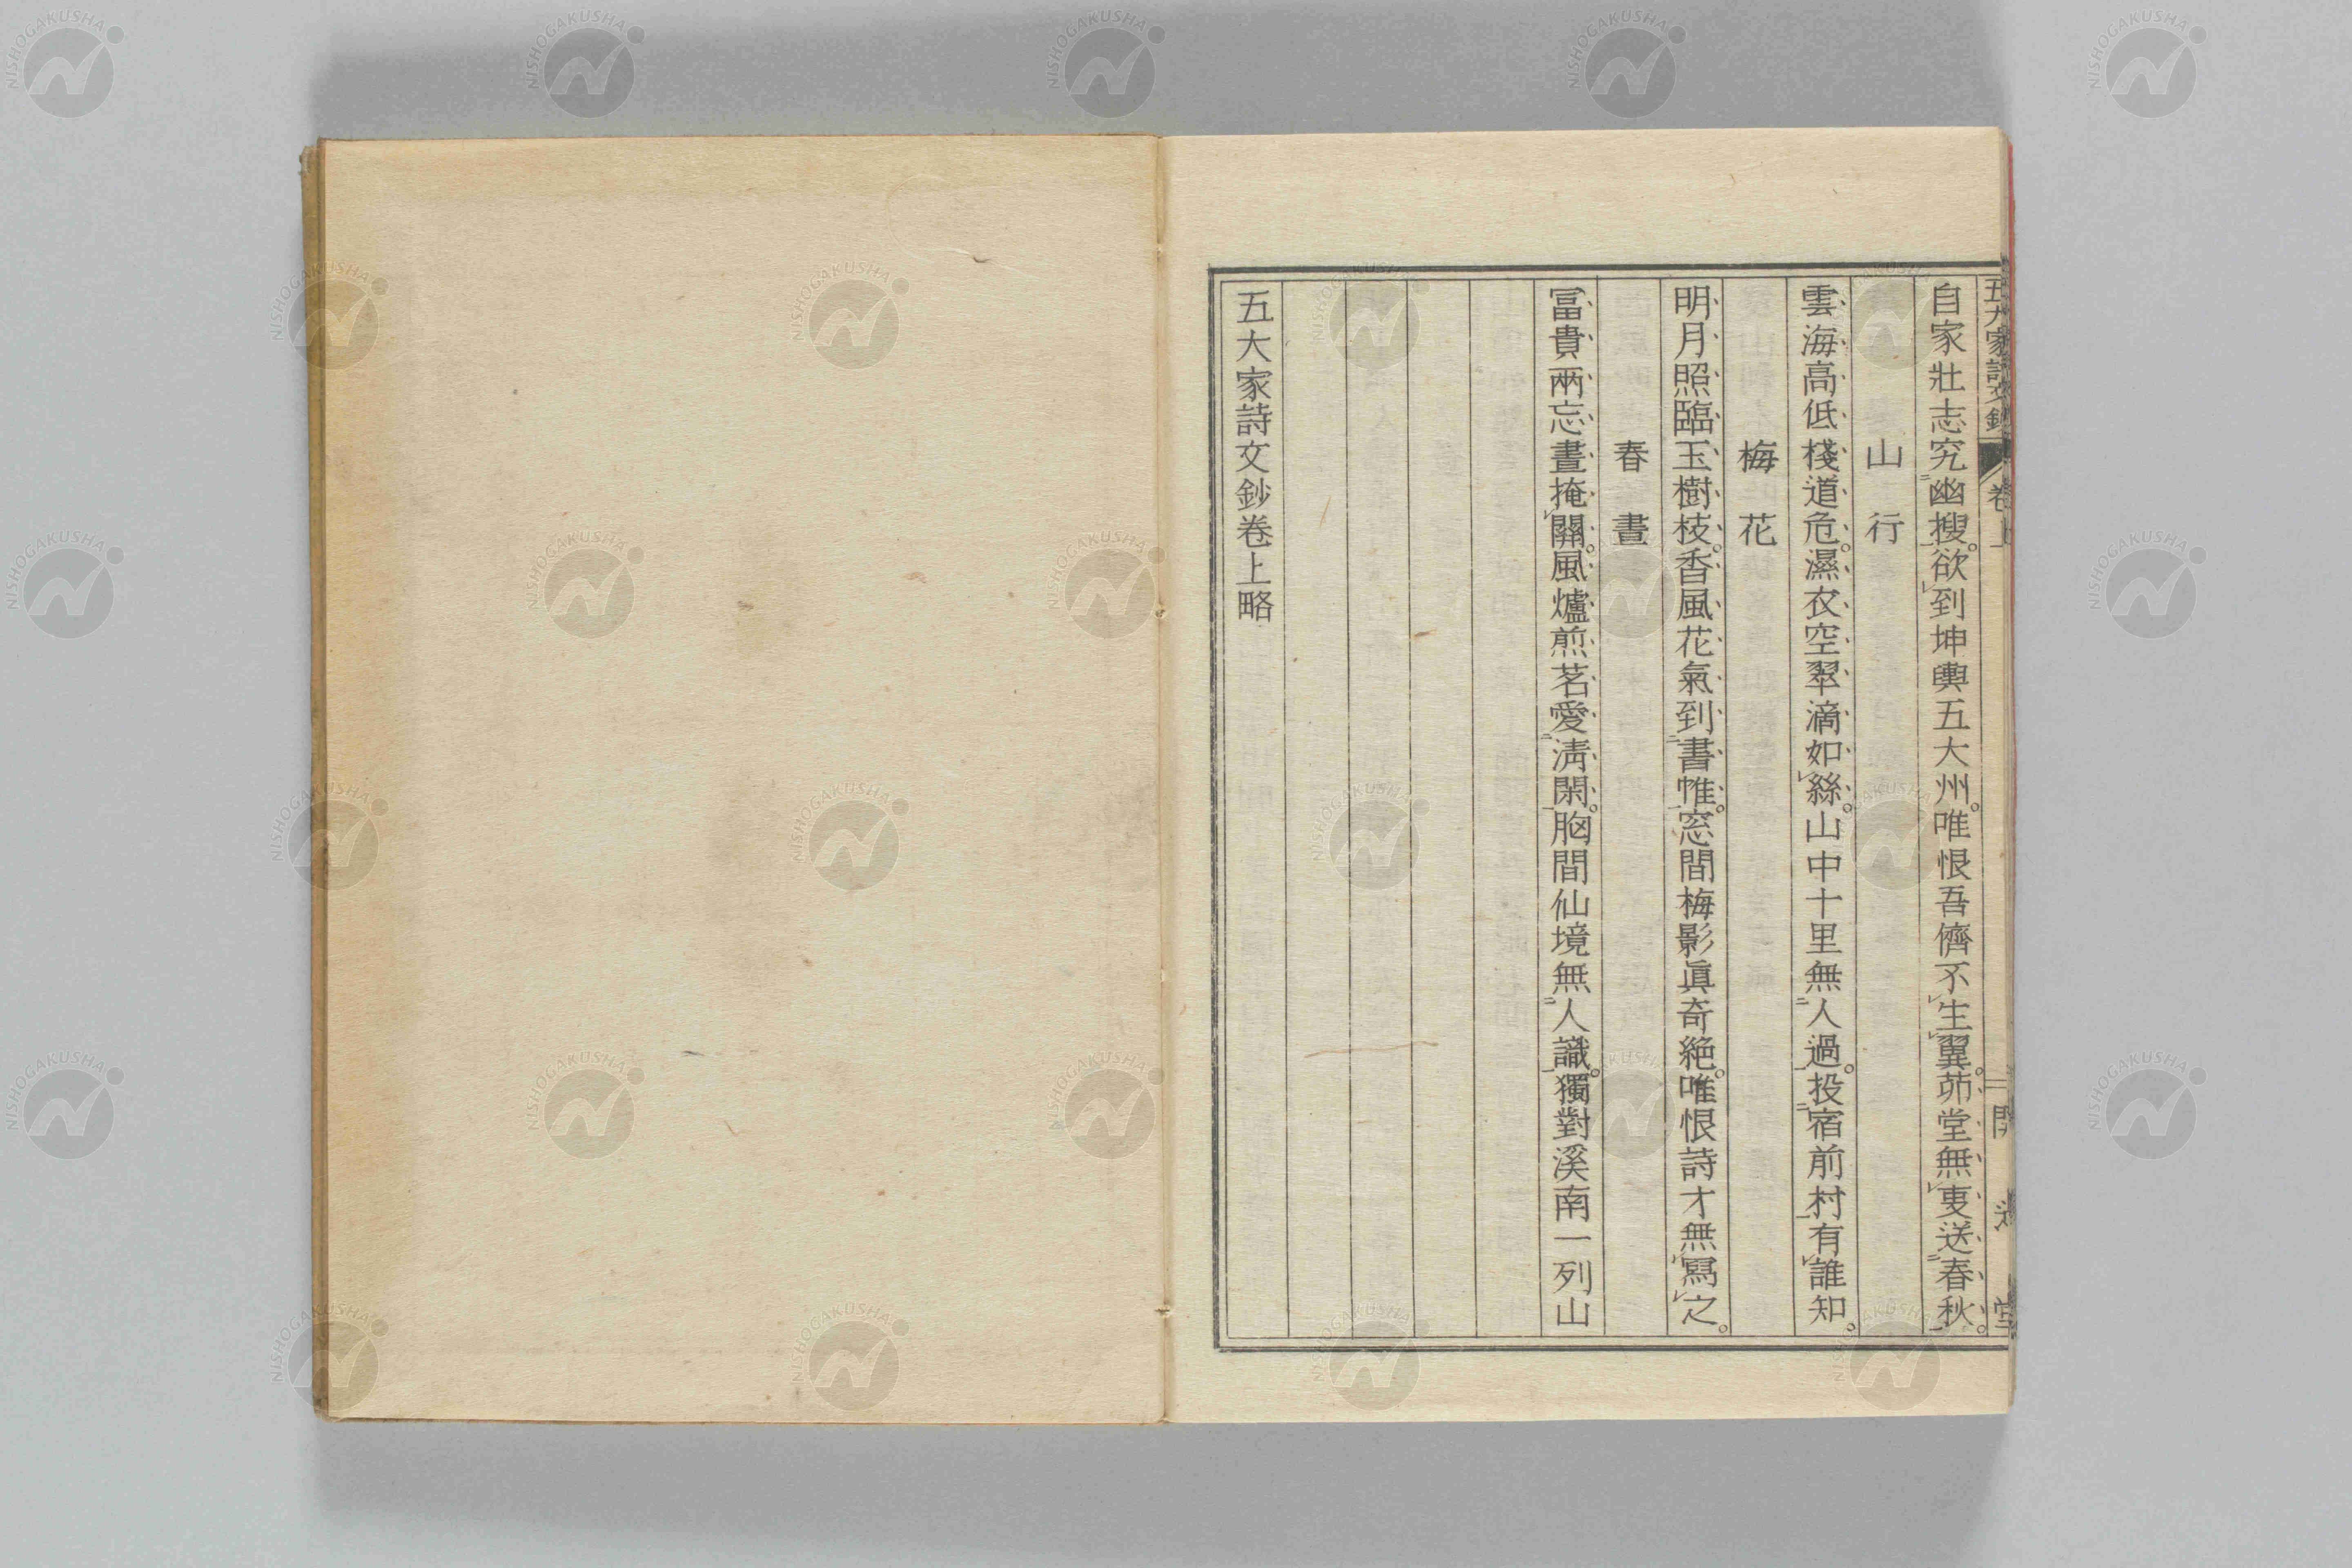 五大家詩文鈔 卷上
自家壯志究幽搜。欲到坤輿五大州。唯恨吾儕不生翼。茆堂無事送春秋。
山行
雲海高低棧道危。濕衣空翠滴如絲。山中十里無人過。投宿前村有誰知。
梅花
明月照臨玉樹枝。香風花氣到書帷。窓間梅影眞奇絶。唯恨詩才無寫之。
春晝
富貴兩忘晝掩關。風爐煎茗愛淸閑。胸間仙境無人識。獨對溪南一列山
五大家詩文鈔卷上略
NISHOGAKUSHA